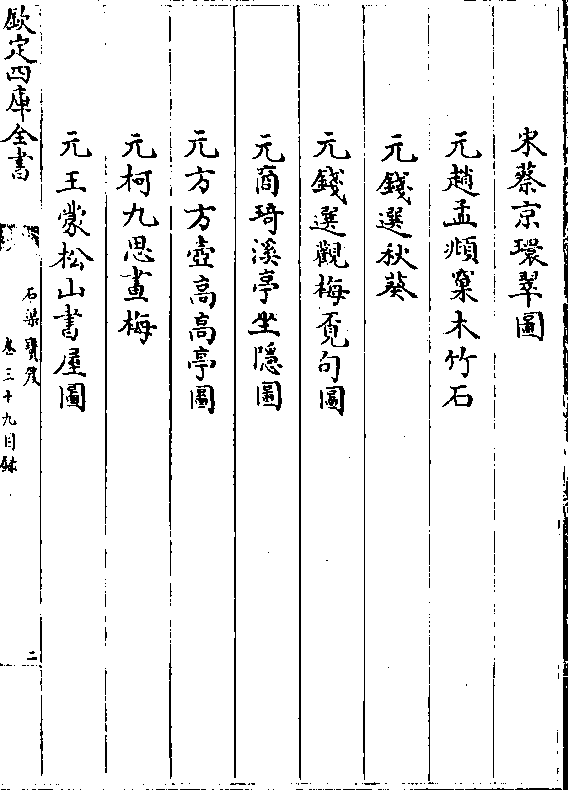 宋蔡京環翠圖
元趙孟頫窠木竹石
元錢選秋葵
元錢選觀梅覔句圖
元商琦溪亭坐隱圖
元方方壺高高亭圖
元柯九思畫梅
元王蒙松山書屋圖
欽定四庫全書
石渠寶笈
卷三十九目録
二